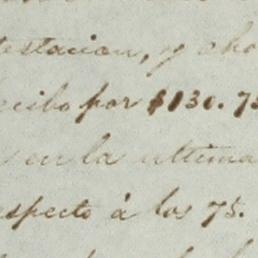 testacion, y
recibo por $130.75
en la ultima
respecto á los 75.